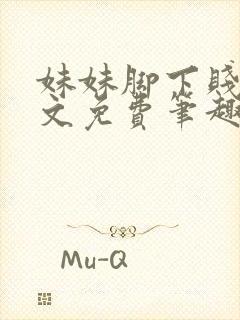 妹妹脚下贱
文免费笔趣
Mu-Q